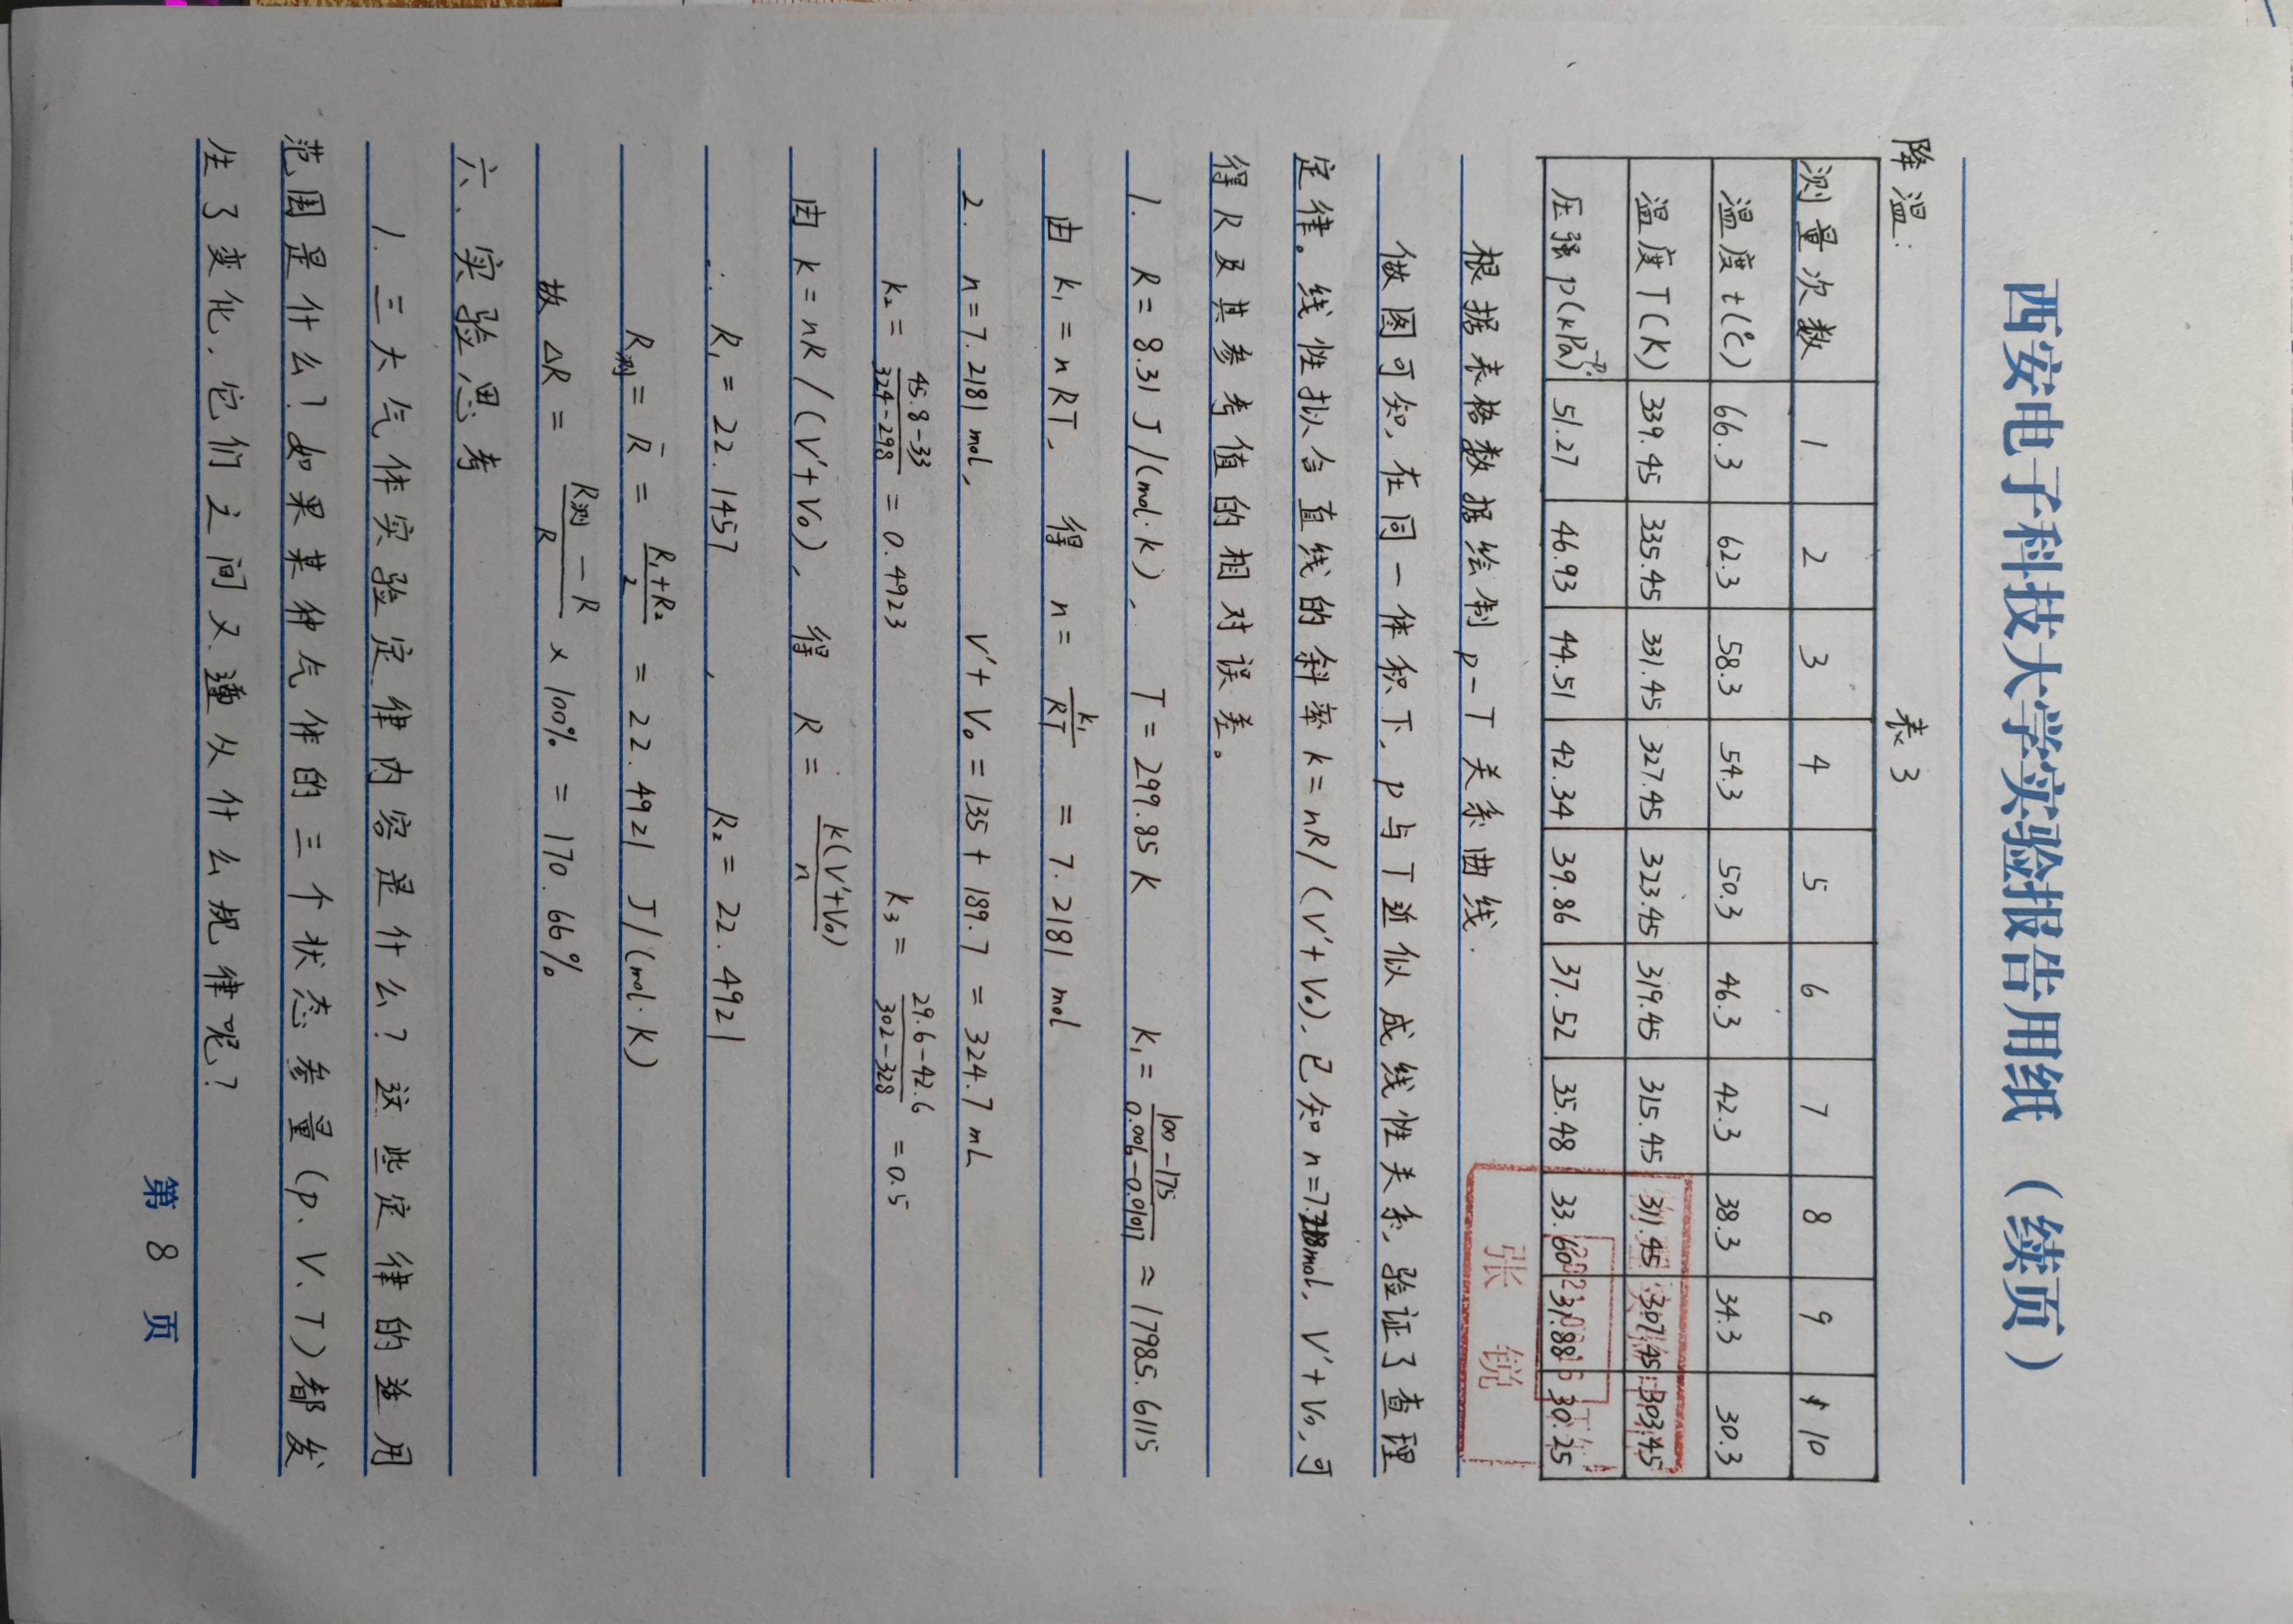 西安电子科技大学实验报告用纸（续页）
降温: 表3
测量次数 1 2 3 4 5 6 7 8 9 10
温度t(℃) 66.3 62.3 58.3 54.3 50.3 46.3 42.3 38.3 34.3 30.3
温度T(K) 339.45 335.45 331.45 327.45 323.45 319.45 315.45 311.45 307.45 303.45
压强p(kPa) 51.27 46.93 44.51 42.34 39.86 37.52 35.48 33.60 31.88 30.25
张 锐
根据表格数据绘制p-T关系曲线.
做图可知,在同一体积下,p与T近似成线性关系,验证了查理
定律。线性拟合直线的斜率k=nR/(V'+V₀),已知n=7.218mol,V'+V₀,可
得R及其参考值的相对误差。
1. R=8.31 J/(mol·K), T=299.85K k₁=(100-175)/(0.006-0.01017)≈17985.6115
由k₁=nRT, 得 n=k₁/RT=7.2181 mol
2. n=7.2181 mol, V'+V₀=135+189.7=324.7mL
k₂=(45.8-33)/(324-298)=0.4923 k₃=(29.6-42.6)/(302-328)=0.5
由k=nR/(V'+V₀), 得 R=k(V'+V₀)/n
∴ R₁=22.1457, R₂=22.4921
R测=R̄=(R₁+R₂)/2=22.4921 J/(mol·K)
故 ΔR=(R测-R)/R×100%=170.66%
六、实验思考
1. 三大气体实验定律内容是什么?这些定律的适用
范围是什么?如果某种气体的三个状态参量(p、V、T)都发
生了变化,它们之间又遵从什么规律呢?
第 8 页